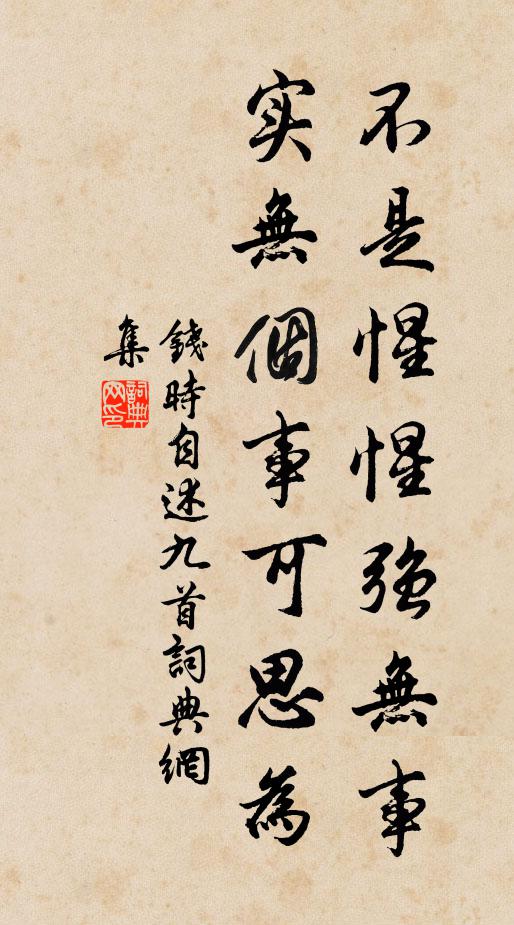 不是惺惺强無事
实無個事可思為
錢時自述九首詞典網
集
詞典網印